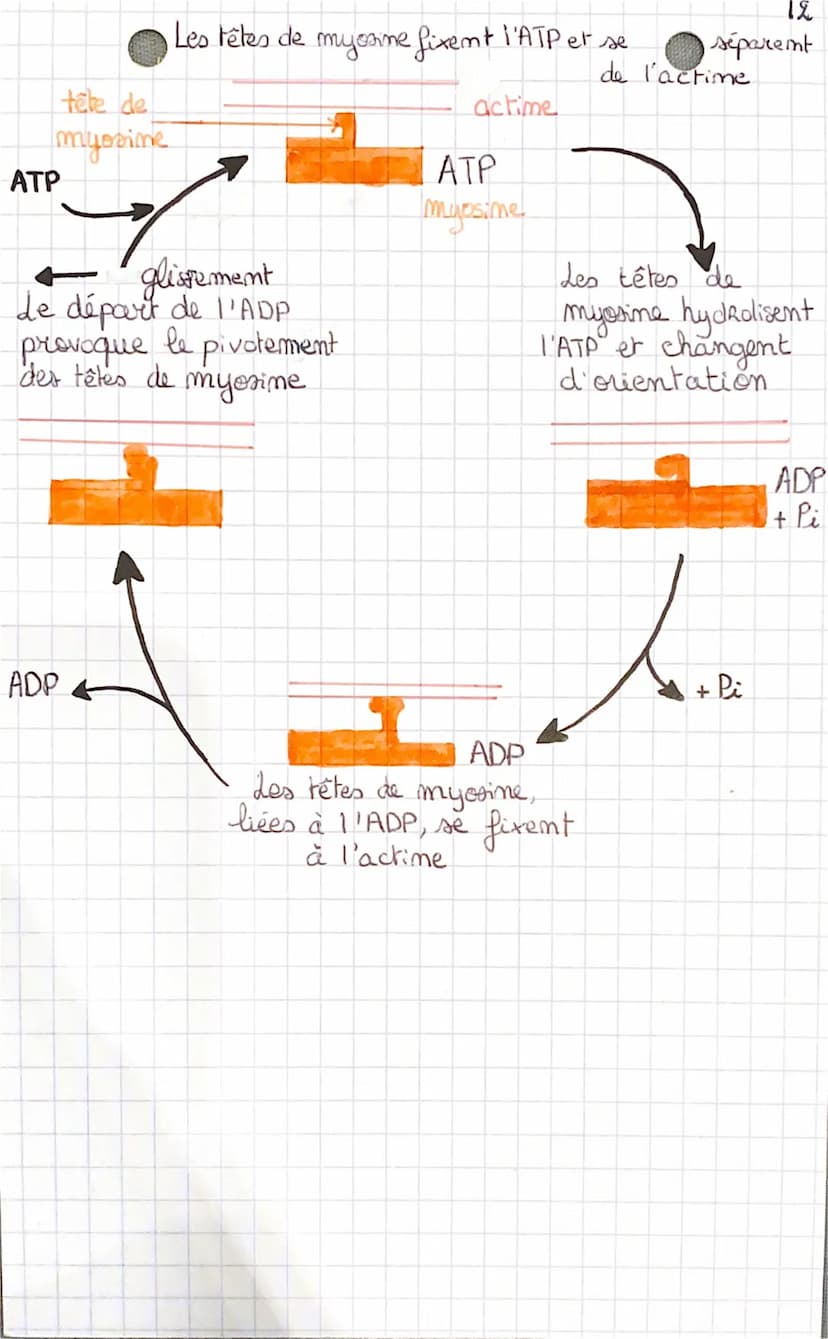 12
Les têtes de myosine fixent l'ATP et se séparent
de l'actine
tête de
myosine
actine
ATP
ATP
myosine
glissement
Le départ de l'ADP
provoque le pivotement
des têtes de myosine
Les têtes de
myosine hydrolisent
l'ATP et changent
d'orientation
ADP
+ Pi
ADP
+ Pi
ADP
Les têtes de myosine,
liées à l'ADP, se fixent
à l'actine